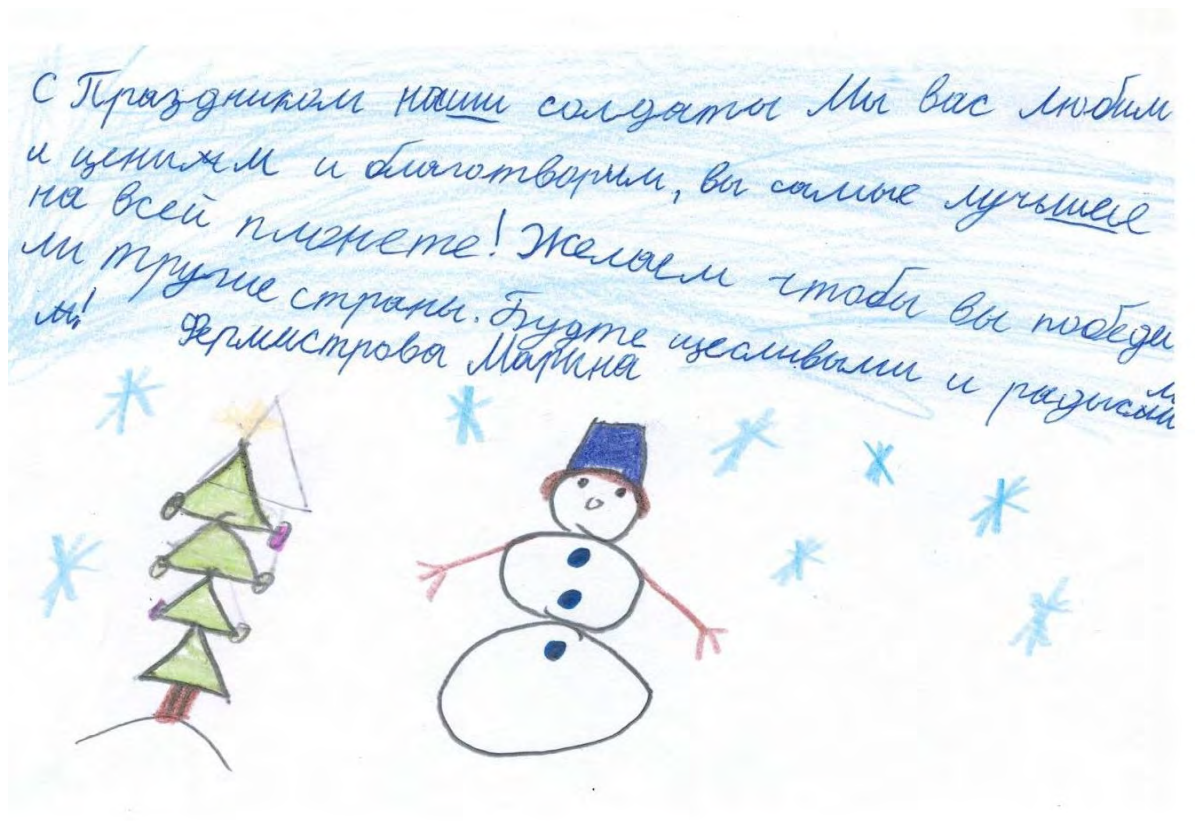 С Праздником наши солдаты Мы вас любим
и ценижм и благотворим, вы самые лучышее
на всей плонете! Желаем чтобы вы победи
ли тругие страны. Будте щесливыми и радысными
ми!
Фермистрова Марина